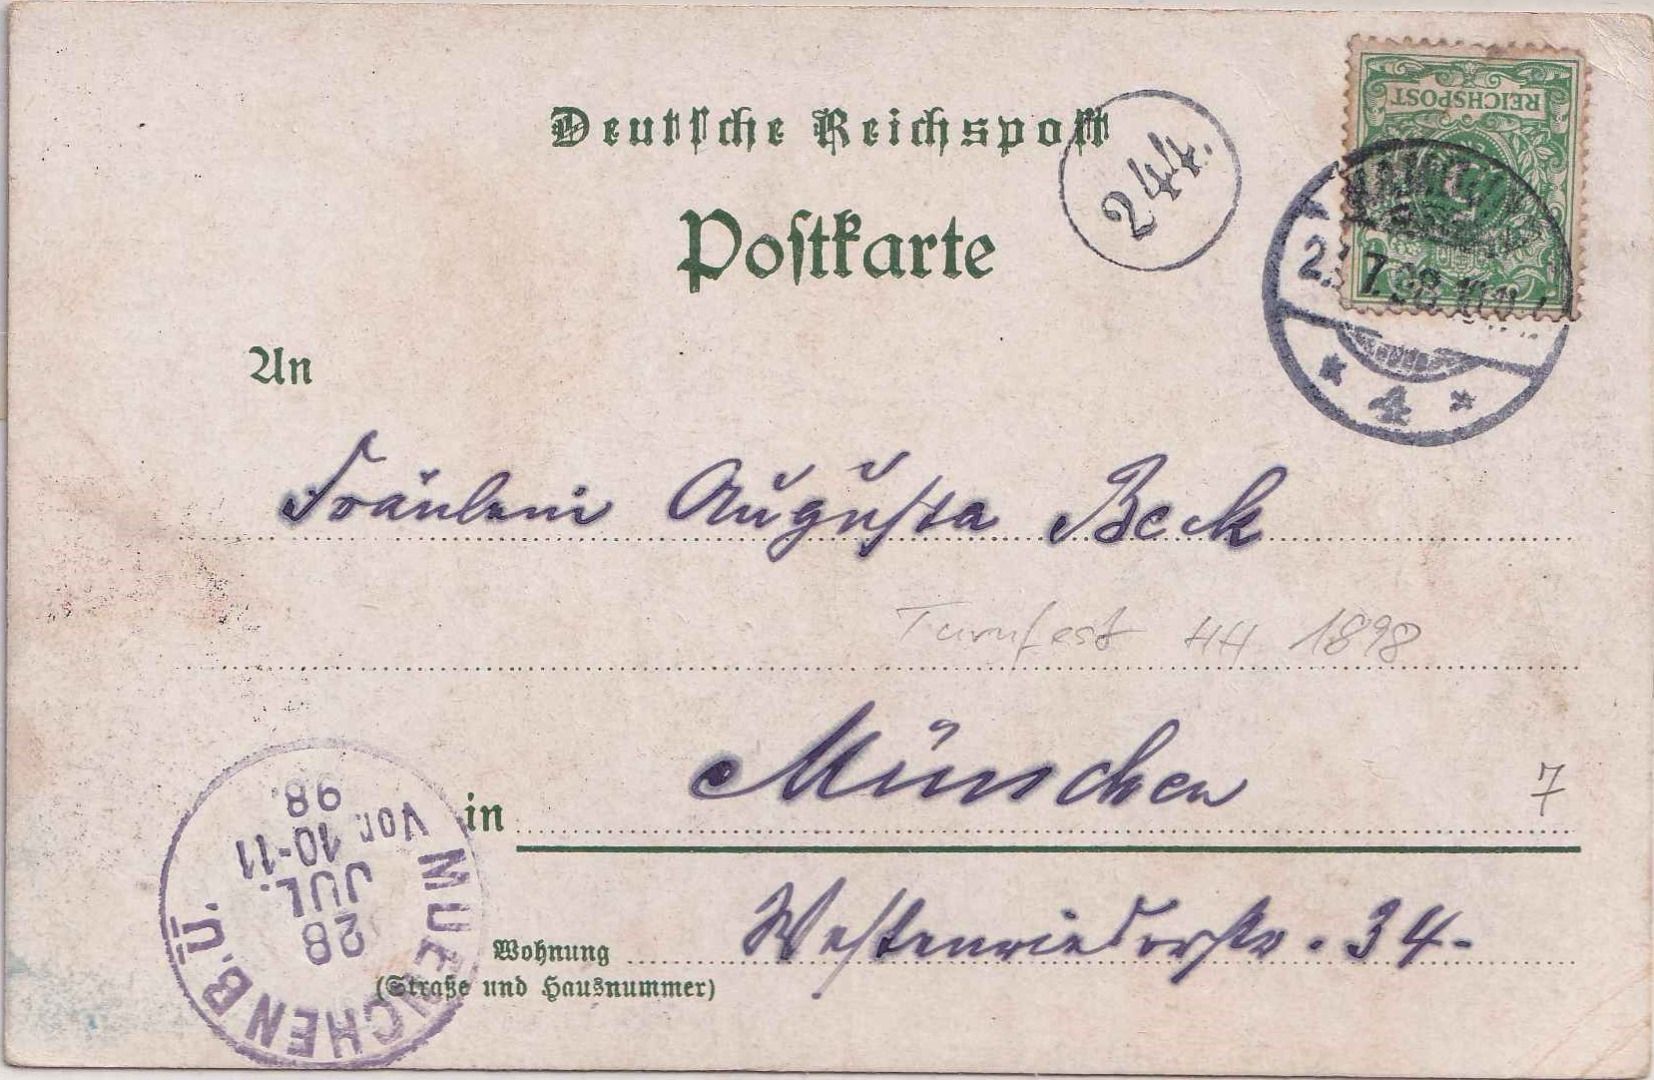 Deutsche Reichspost
244.
REICHSPOST
Postkarte
7. 98
4
An
Fräulein Augusta Beck
Turnfest HH 1898
in München
7
Westenriederstr. 34-
Wohnung
(Straße und Hausnummer)
MUENCHEN B.Ü.
28
JUL.
Vor. 10-11
98.